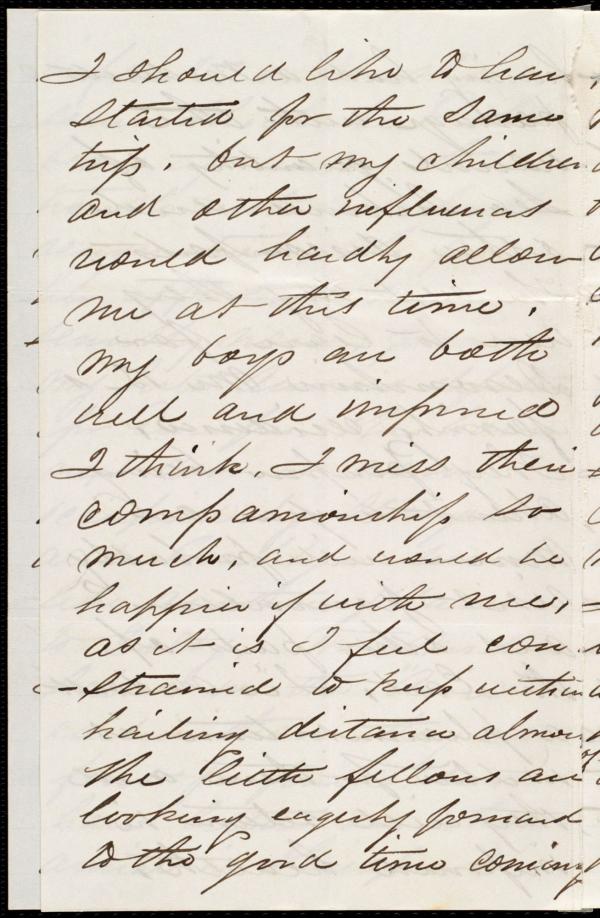 I should like to have
started for the same
trip. but my children
and other influences
would hardly allow
me at this time.
my boys are both
well and improved
I think. I miss their
companionship so
much, and would be
happier if with me,
as it is I feel con
-strained to keep within
hailing distance almost
the little fellows are
looking eagerly forward
to the good time coming